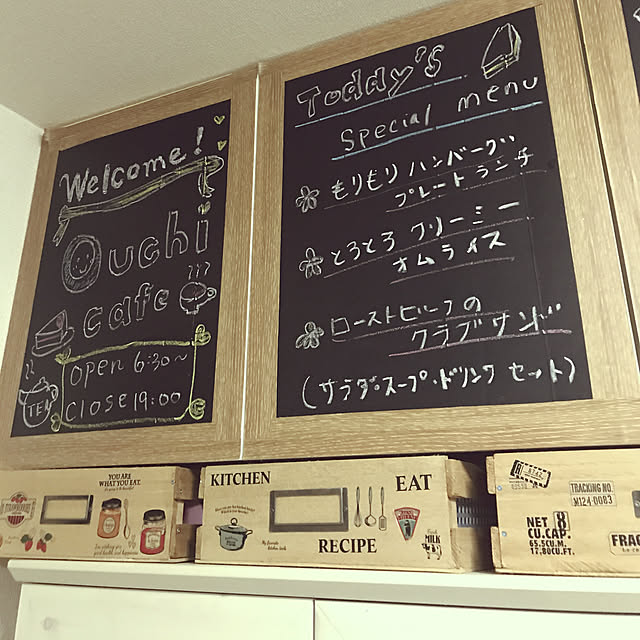 Welcome!
Ouchi
cafe
open 6:30~
close 19:00
TEA
Today's
Special menu
もりもり ハンバーグ
プレートランチ
とろとろ クリーミー
オムライス
ローストビーフの
クラブサンド
(サラダ・スープ・ドリンク セット)
YOU ARE
WHAT YOU EAT.
KITCHEN
EAT
RECIPE
MILK
TRACKING NO.
M124-0083
NET 8
CU.CAP.
65.5CU.M.
17,80CU.FT.
FRAG